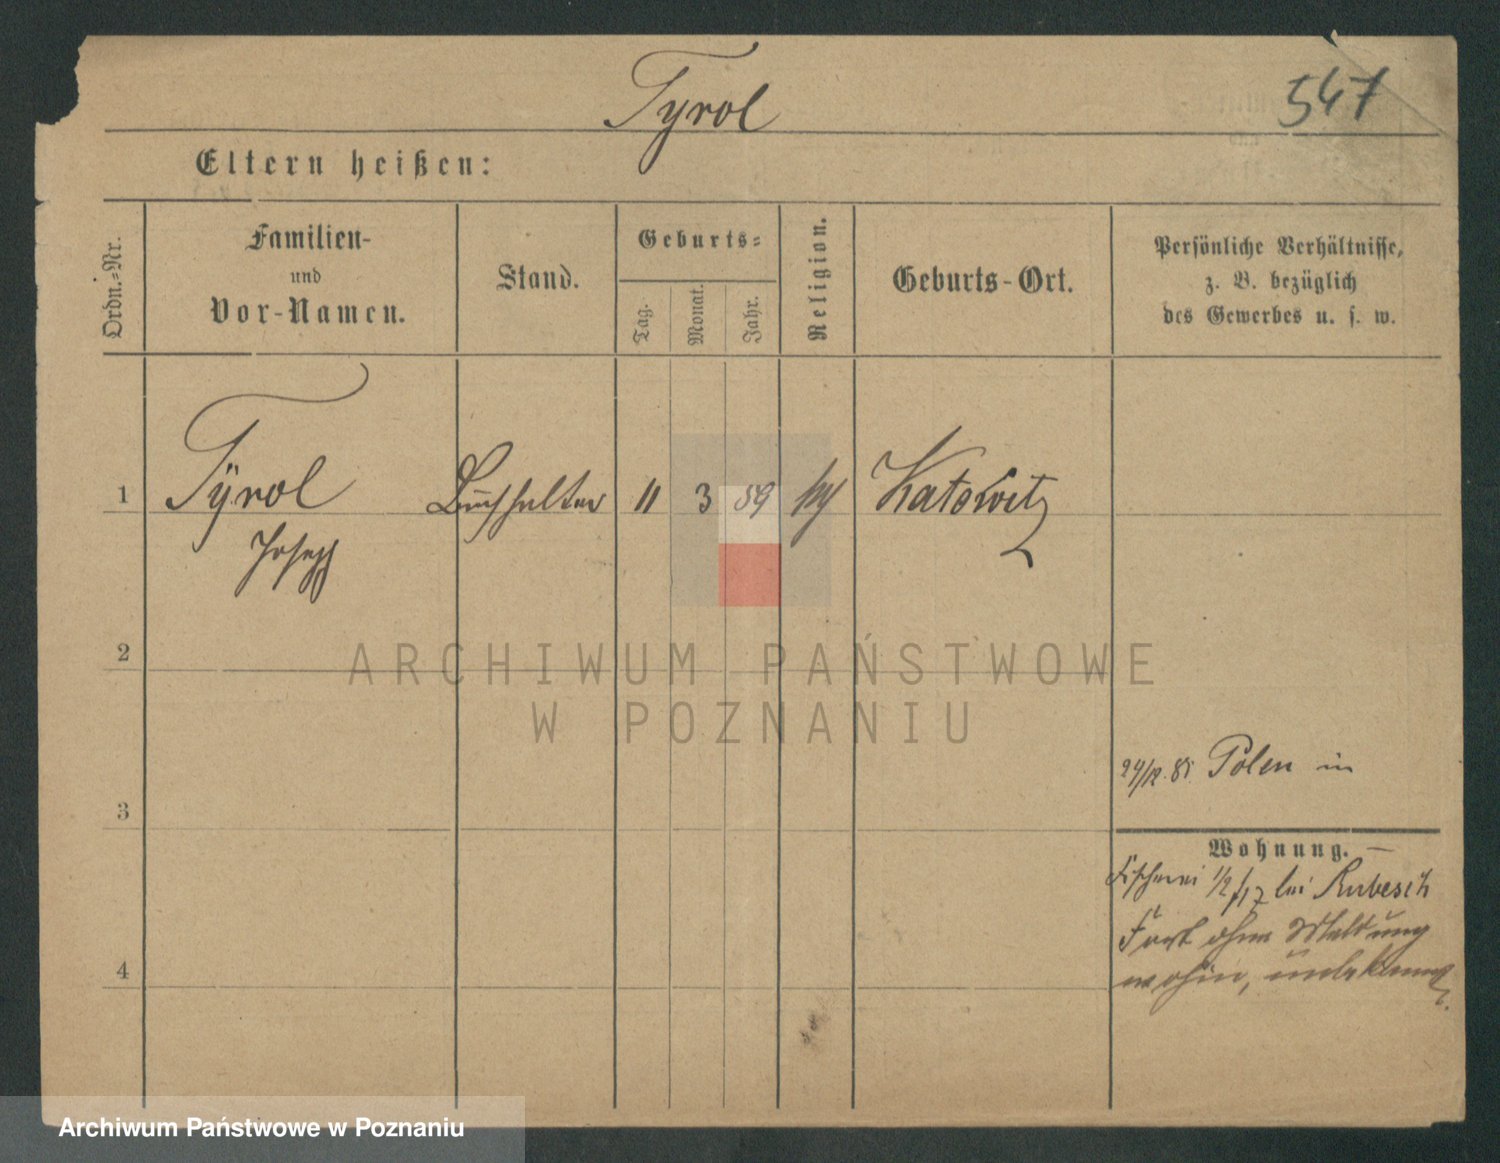 Tyrol
547
Eltern heißen:
Ordn.-Nr.
Familien-
und
Vor-Namen.
Stand.
Geburts-
Tag.
Monat.
Jahr.
Religion.
Geburts-Ort.
Persönliche Verhältnisse,
z. B. bezüglich
des Gewerbes u. s. w.
1
Tÿrol
Joseph
Buchhalter
11
3
59
Katowitz
2
ARCHIWUM PAŃSTWOWE
W POZNANIU
24/12. 85. Polen in
3
Wohnung.
Fischerei 1/2 /17 bei Rubesch
Fort ohne Meldung
wohin, unbekannt.
4
Archiwum Państwowe w Poznaniu